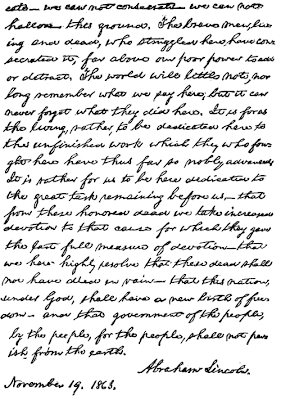 cate - we can not consecrate - we can not
hallow - this ground. The brave men, liv-
ing and dead, who struggled here, have con-
secrated it, far above our poor power to add
or detract. The world will little note, nor
long remember what we say here, but it can
never forget what they did here. It is for us
the living, rather, to be dedicated here to
the unfinished work which they who fou-
ght here have thus far so nobly advanced.
It is rather for us to be here dedicated to
the great task remaining before us - that
from these honored dead we take increased
devotion to that cause for which they gave
the last full measure of devotion - that
we here highly resolve that these dead shall
not have died in vain - that this nation,
under God, shall have a new birth of free-
dom - and that government of the people,
by the people, for the people, shall not per-
ish from the earth.
Abraham Lincoln.
November 19, 1863.